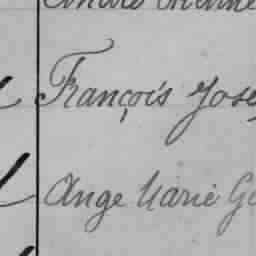 François Jose
Ange Marie Ge